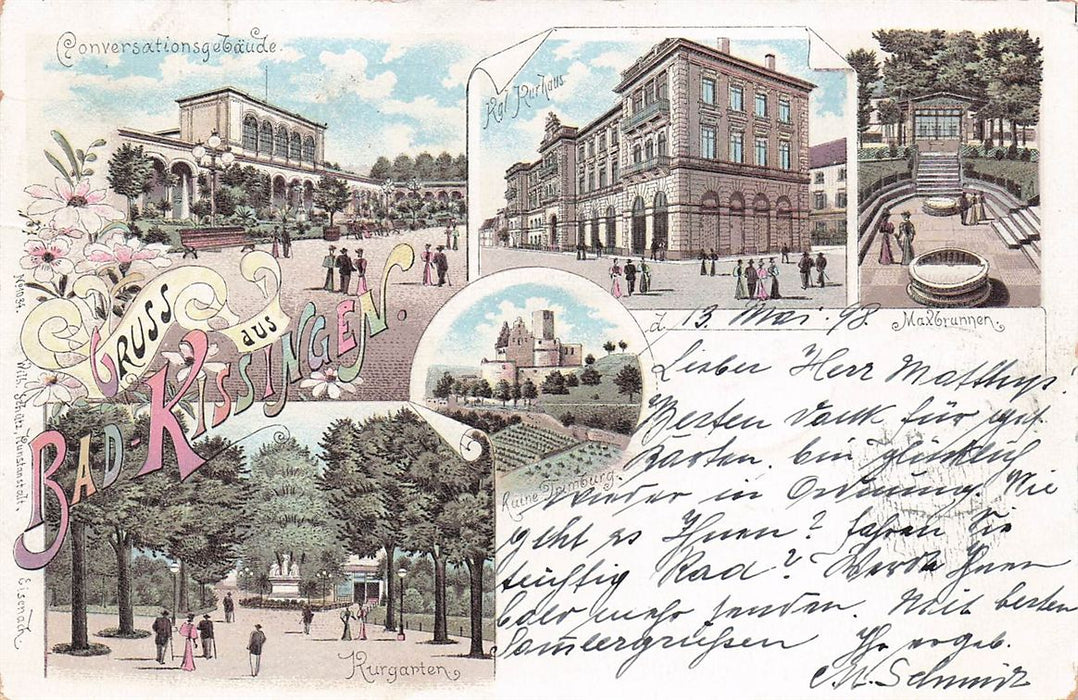 Conversationsgebäude.
Kgl. Kurhaus
Maxbrunnen.
GRUSS
aus
BAD-KISSINGEN.
Ruine Trimburg.
Kurgarten.
No 1034. Wilh. Schütz, Kunstanstalt, Eisenach.
d. 13. Mai. 98.
Lieber Herr Matthys!
Besten Dank für gut.
Karten. bin glücklich
wieder in Ordnung. Wie
geht es Ihnen? fahren Sie
tüchtig Rad? Werde Ihnen
bald mehr senden. Mit besten
Sammlergrüßen Ihr ergeb.
M. Schmitz